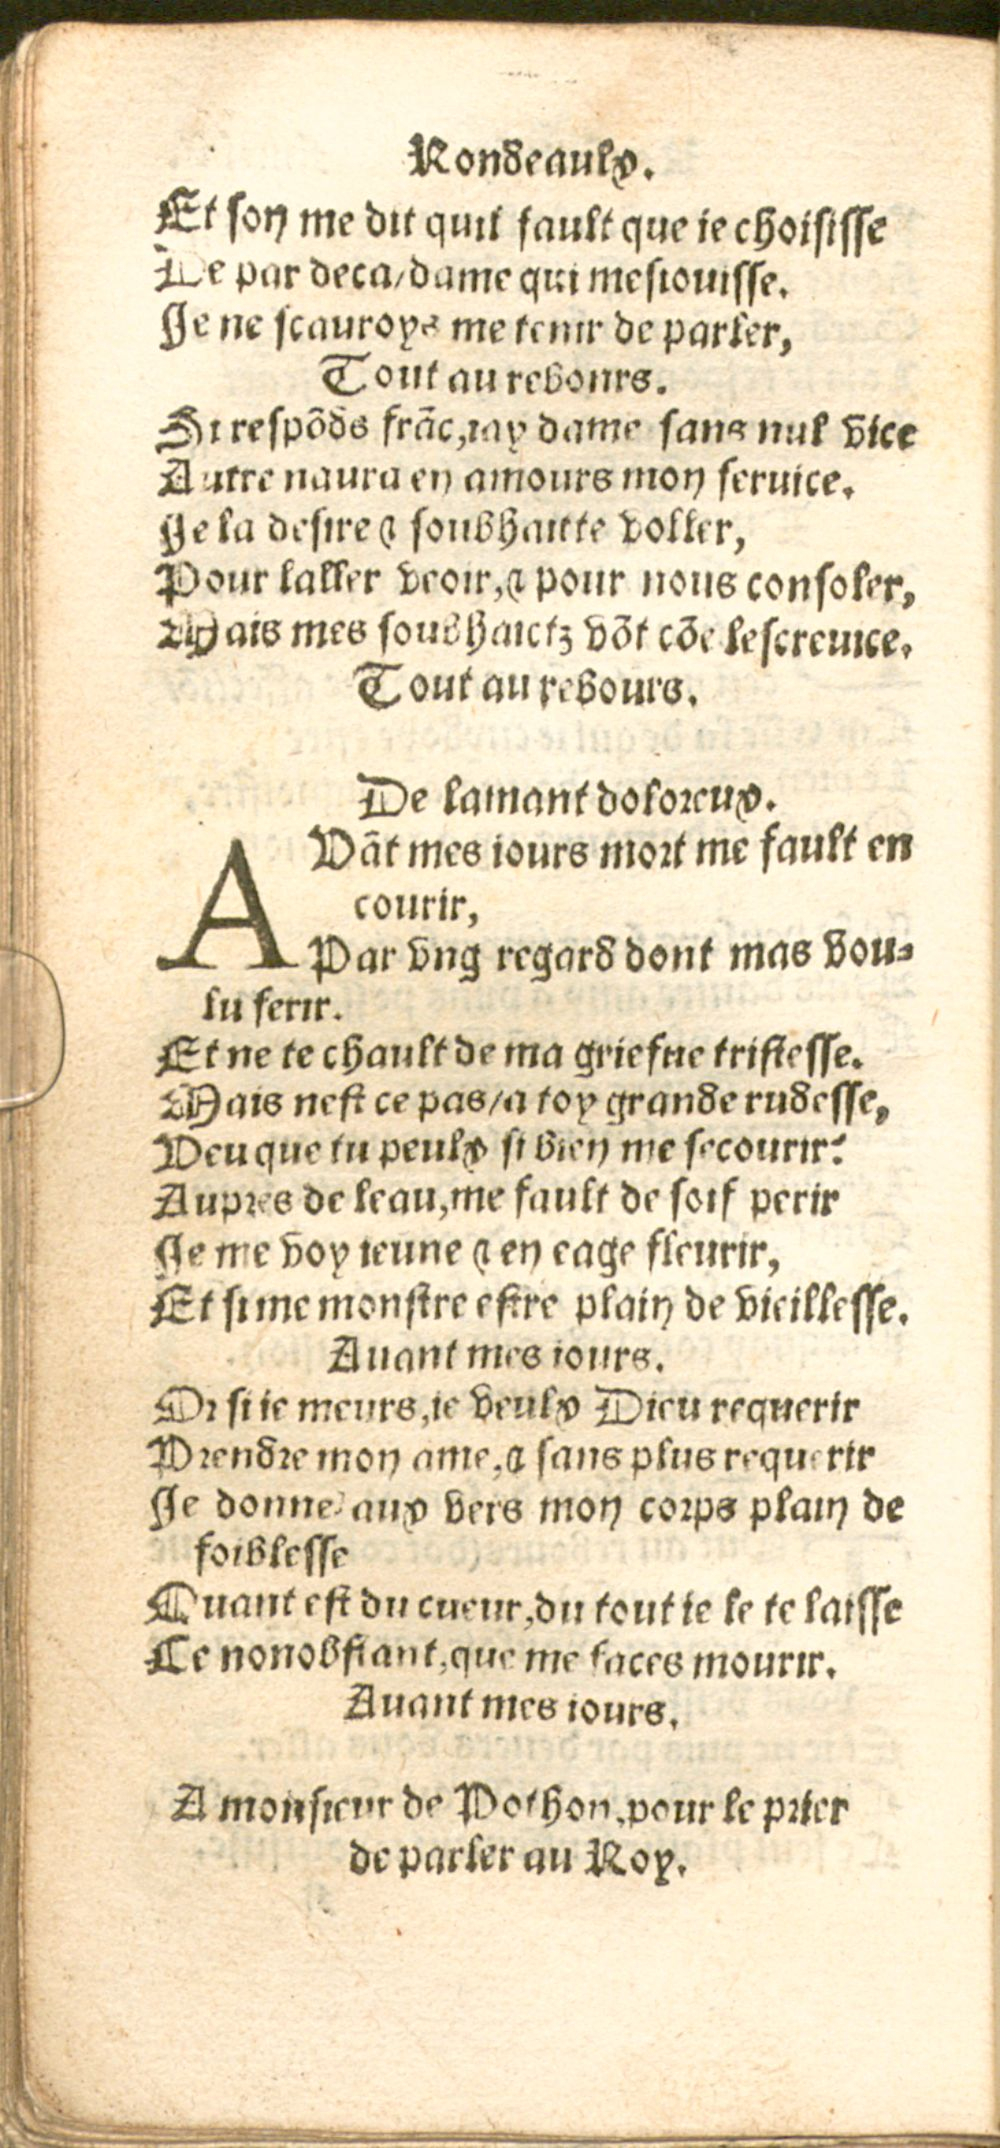 Rondeaulx.
Et son me dit quil fault que ie choisisse
De par deca/dame qui mesiouisse.
Je ne scauroys me tenir de parler,
Tout au rebours.
Si respõds frãc,iay dame sans nul vice
Autre naura en amours mon seruice.
Je la desire ⁊ soubhaitte voller,
Pour laller veoir,⁊ pour nous consoler,
Mais mes soubhaictz võt cõe lescreuice.
Tout au rebours.
De lamant doloreux.
AVãt mes iours mort me fault en
courir,
Par vng regard dont mas vou=
lu ferir.
Et ne te chault de ma griefue tristesse.
Mais nest ce pas/a toy grande rudesse,
Veu que tu peulx si bien me secourir?
Aupres de leau,me fault de soif perir
Je me voy ieune ⁊ en eage fleurir,
Et si me monstre estre plain de vieillesse.
Auant mes iours.
Or si ie meurs,ie veulx Dieu requerir
Prendre mon ame,⁊ sans plus requerir
Je donne aux vers mon corps plain de
foiblesse
Quant est du cueur,du tout ie le te laisse
Ce nonobstant,que me faces mourir.
Auant mes iours.
A monsieur de Pothon,pour le prier
de parler au Roy.